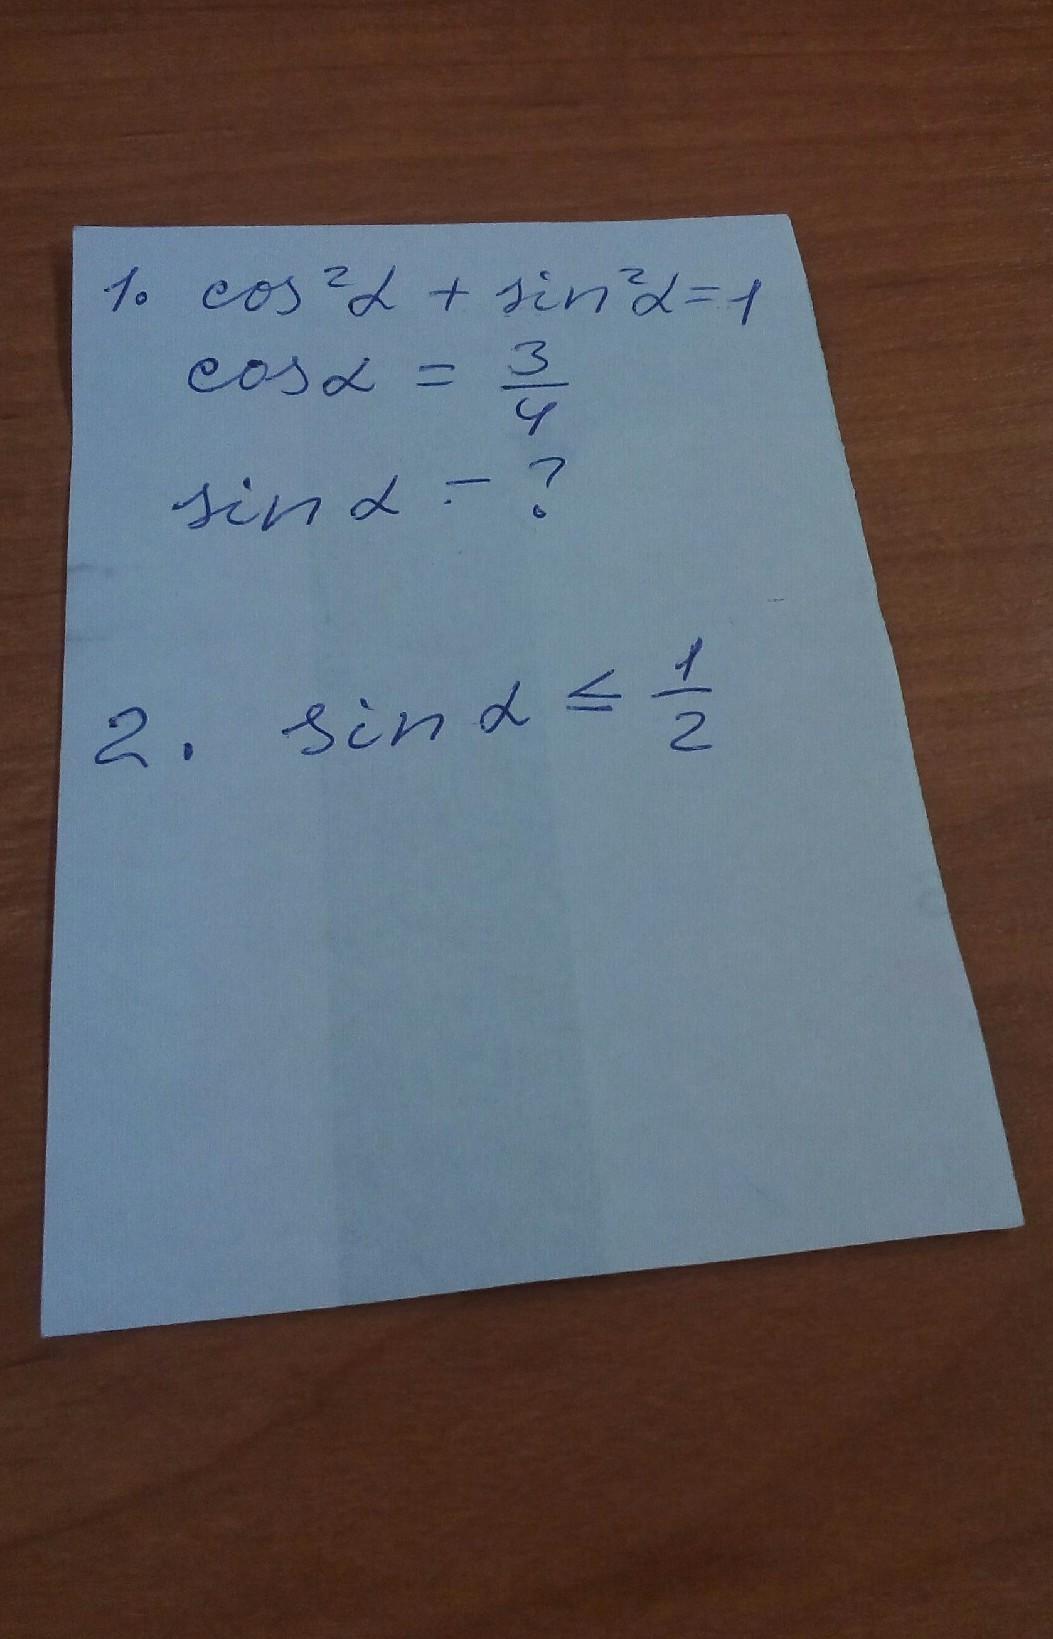 1. cos²α + sin²α = 1
cosα = 3/4
sin α - ?
2. sin α ≤ 1/2